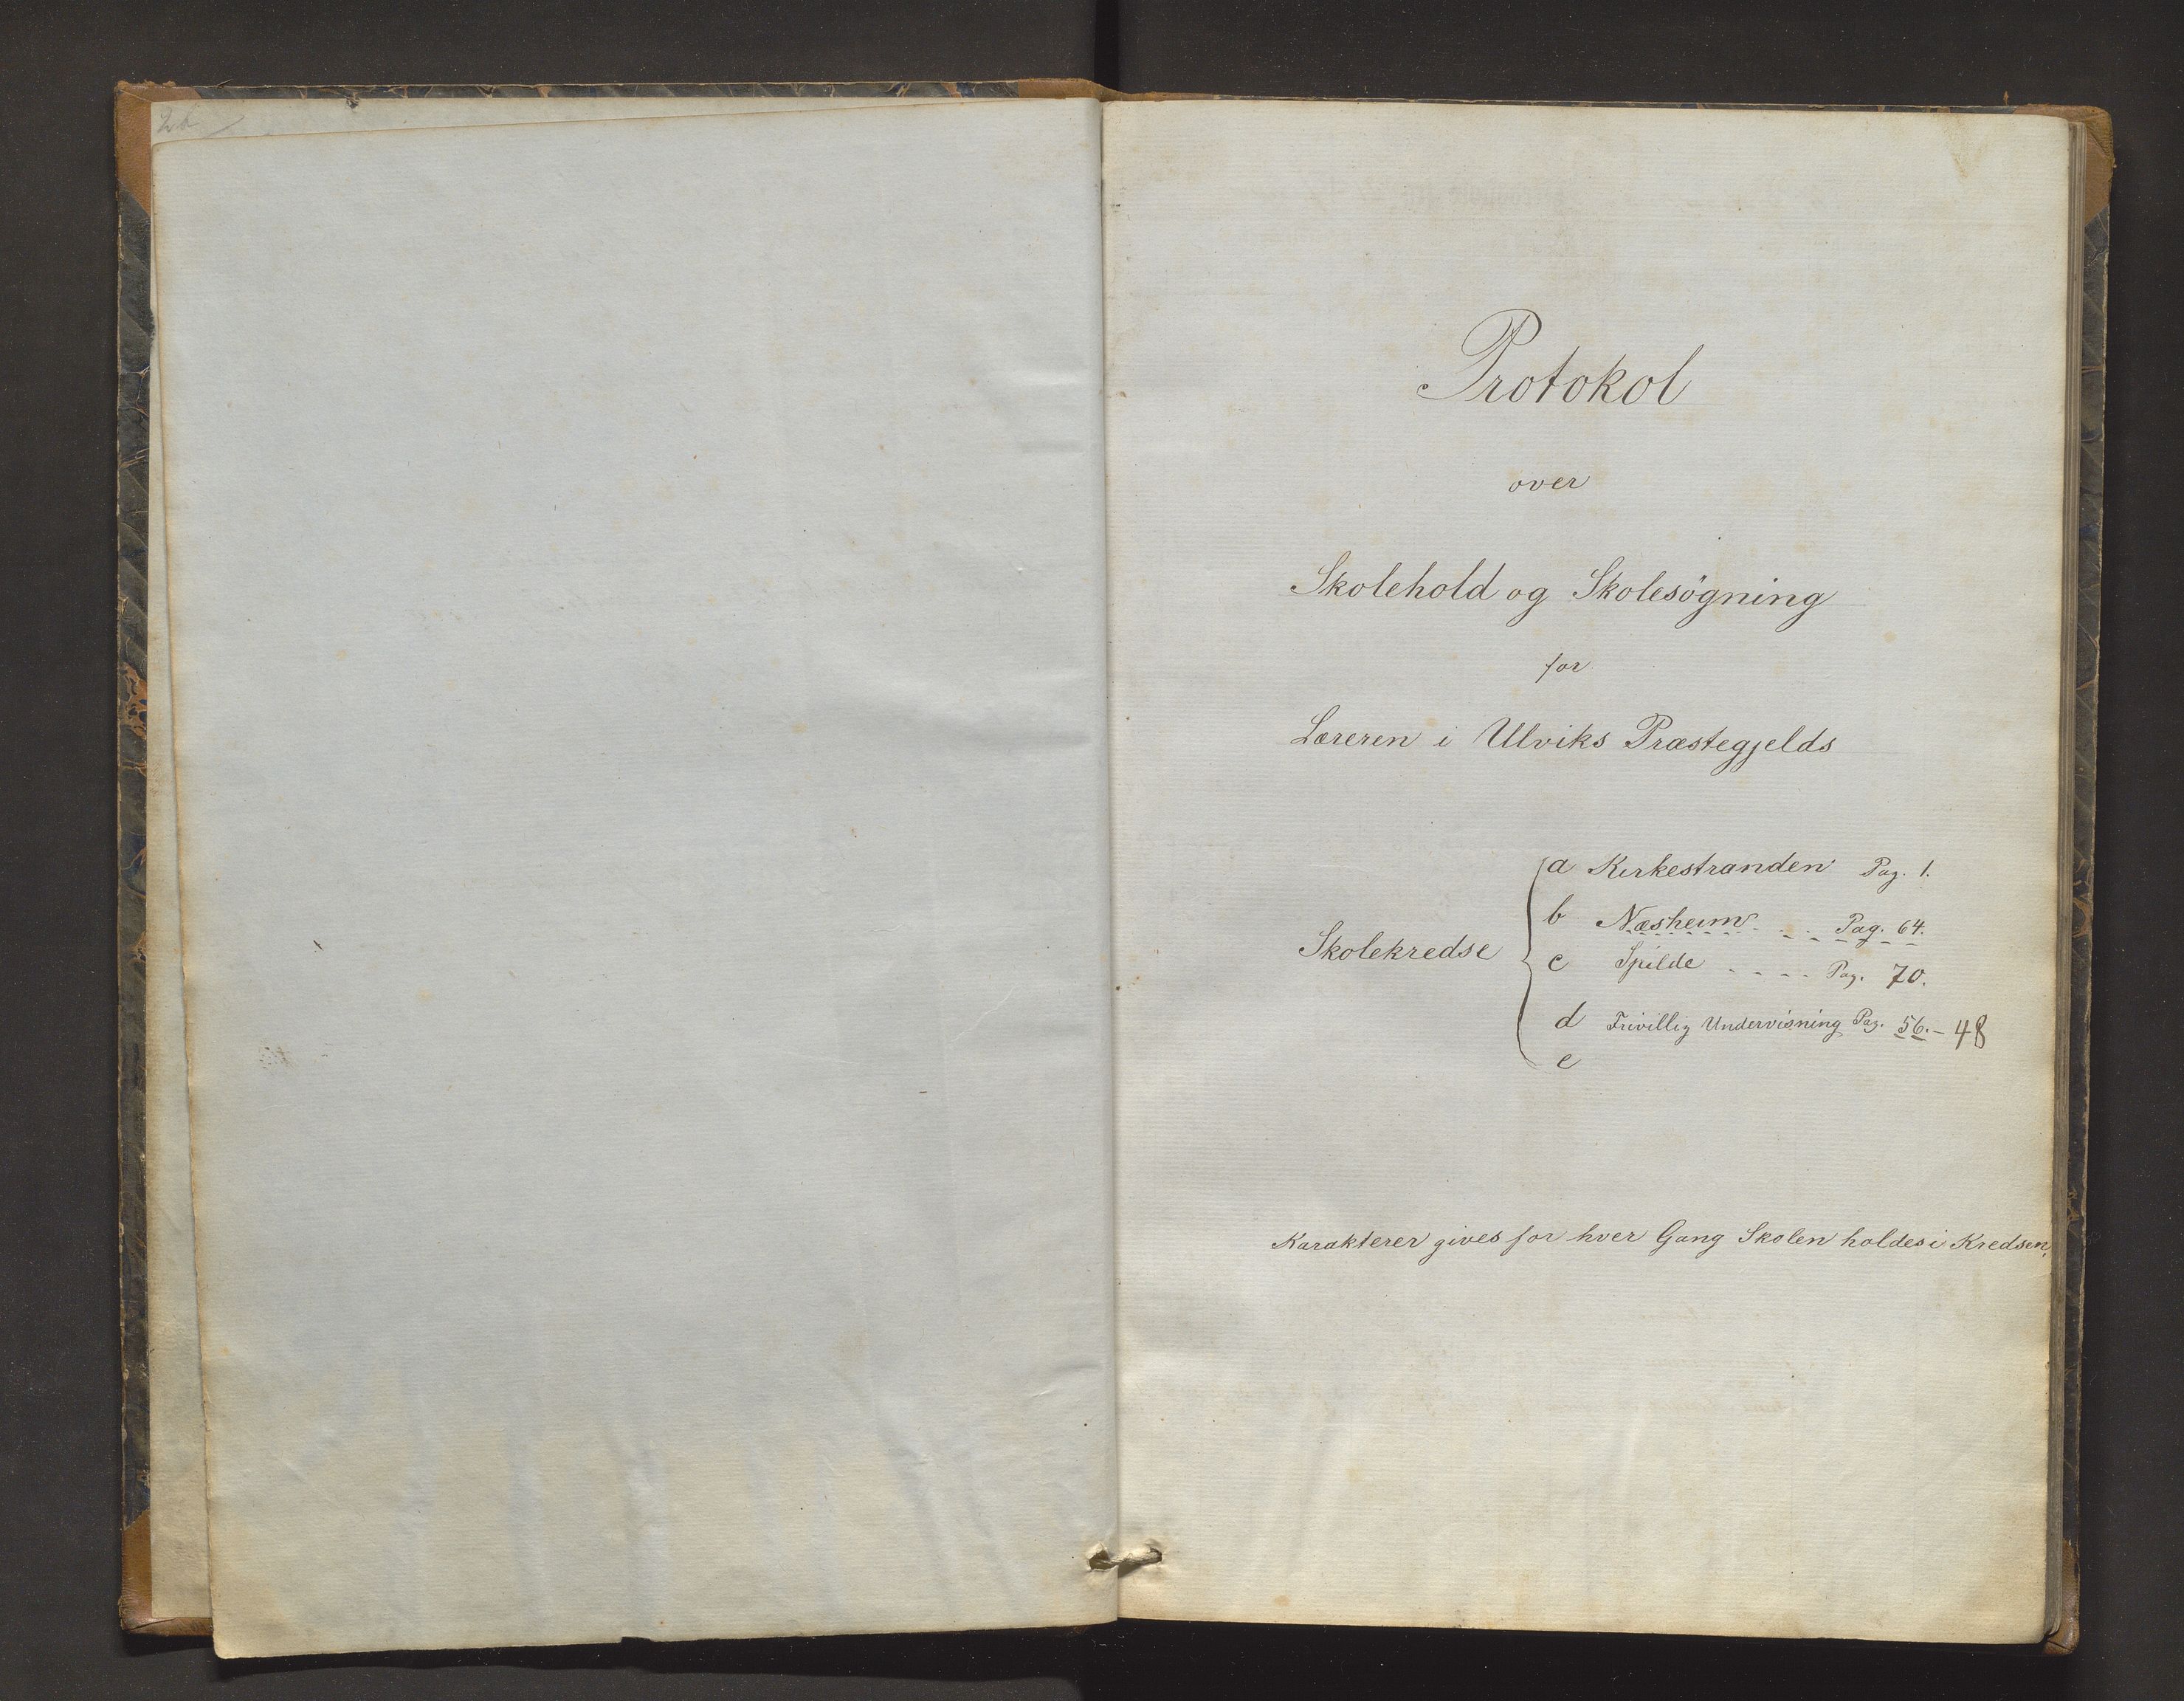 Protokol
over
Skolehold og Skolesögning
for
Læreren i Ulviks Præstegjelds
Skolekredse
a Kirkestranden Pag. 1.
b Næsheim . . . Pag. 64.
c Spilde . . . . Pag. 70.
d Frivillig Undervisning Pag. 56. - 48
e
Karakterer gives for hver Gang Skolen holdes i Kredsen.